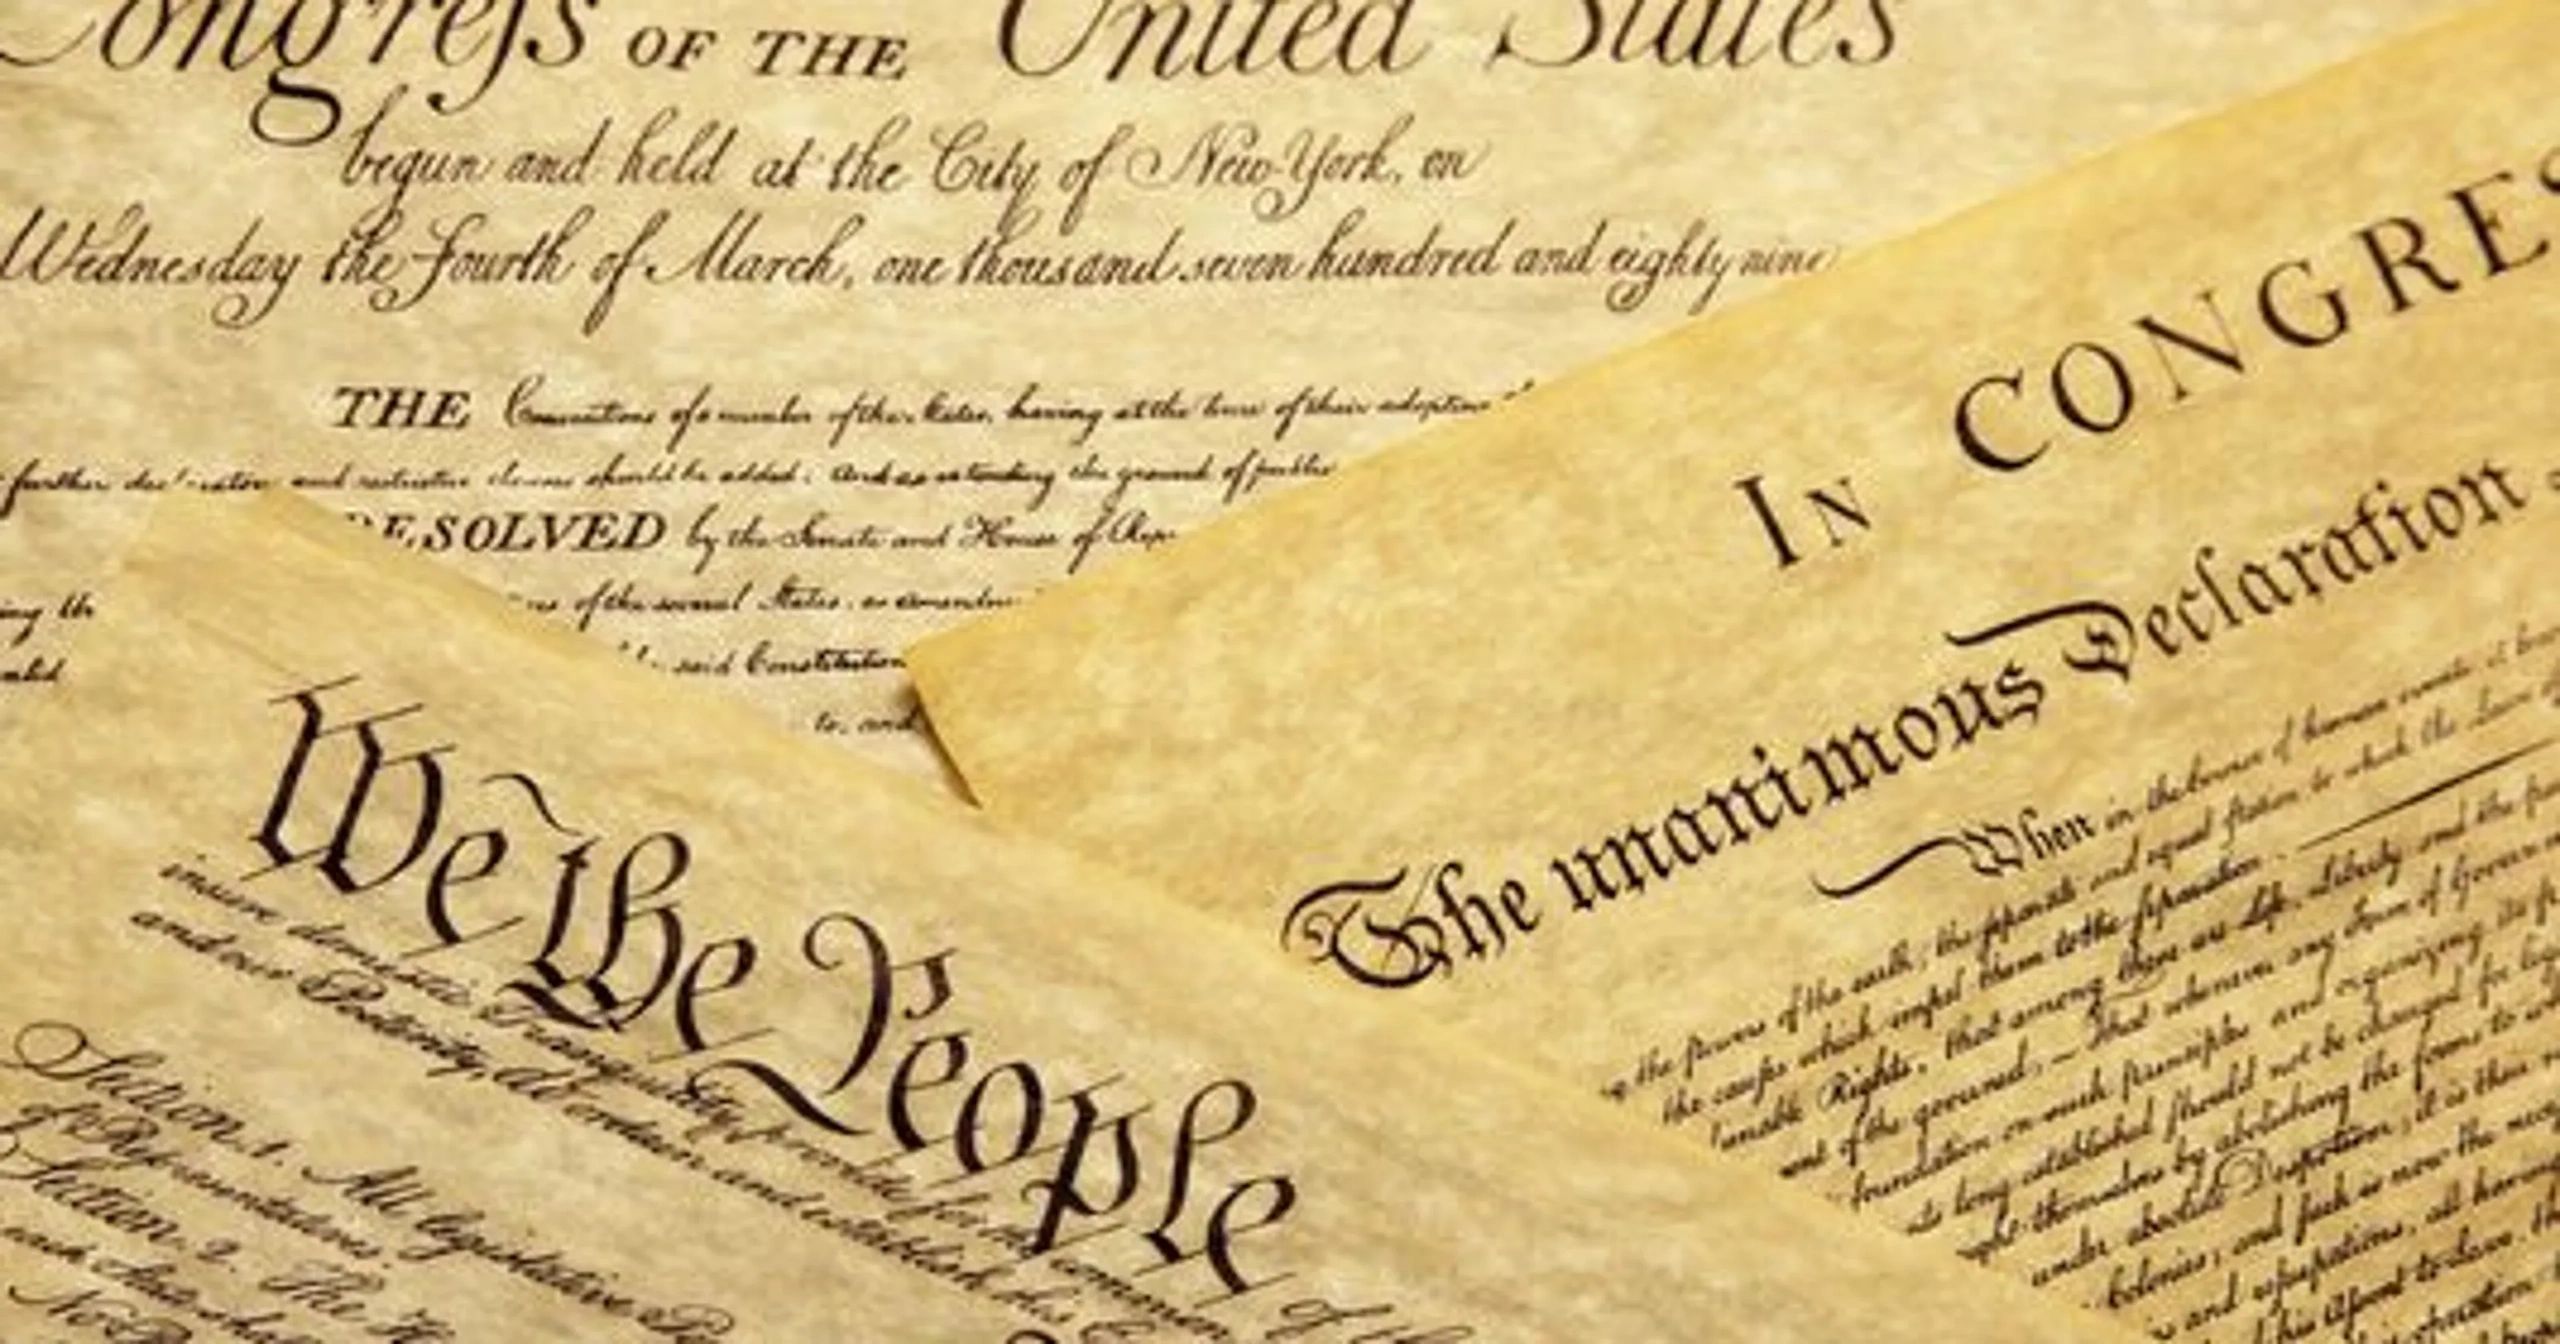 Congress OF THE United States
begun and held at the City of New-York, on
Wednesday the Fourth of March, one thousand seven hundred and eighty nine
THE Conventions of a number of the States, having at the time of their adoption
further declaratory and restrictive clauses should be added: And as extending the ground of public
RESOLVED by the Senate and House of Rep
of the several States, as amendm
said Constitution
to, and
IN CONGRES
The unanimous Declaration
When in the Course of human events, it bec
the powers of the earth, the separate and equal station to which the Laws of
the causes which impel them to the separation.
unable Rights, that among these are Life, Liberty and the pur
ent of the governed, — That whenever any Form of Govern
foundation on such principles and organizing its p
its long established should not be changed for lig
themselves by abolishing the forms to wh
under absolute Despotism, it is their
Colonies; and such is now the nece
and usurpations, all having
We the People
insure domestic Tranquility, provide for the common
and our Posterity, do ordain and establish this C
Section. 1. All legislative Po
of Representatives.
Section. 2. The H
each State sha
No P